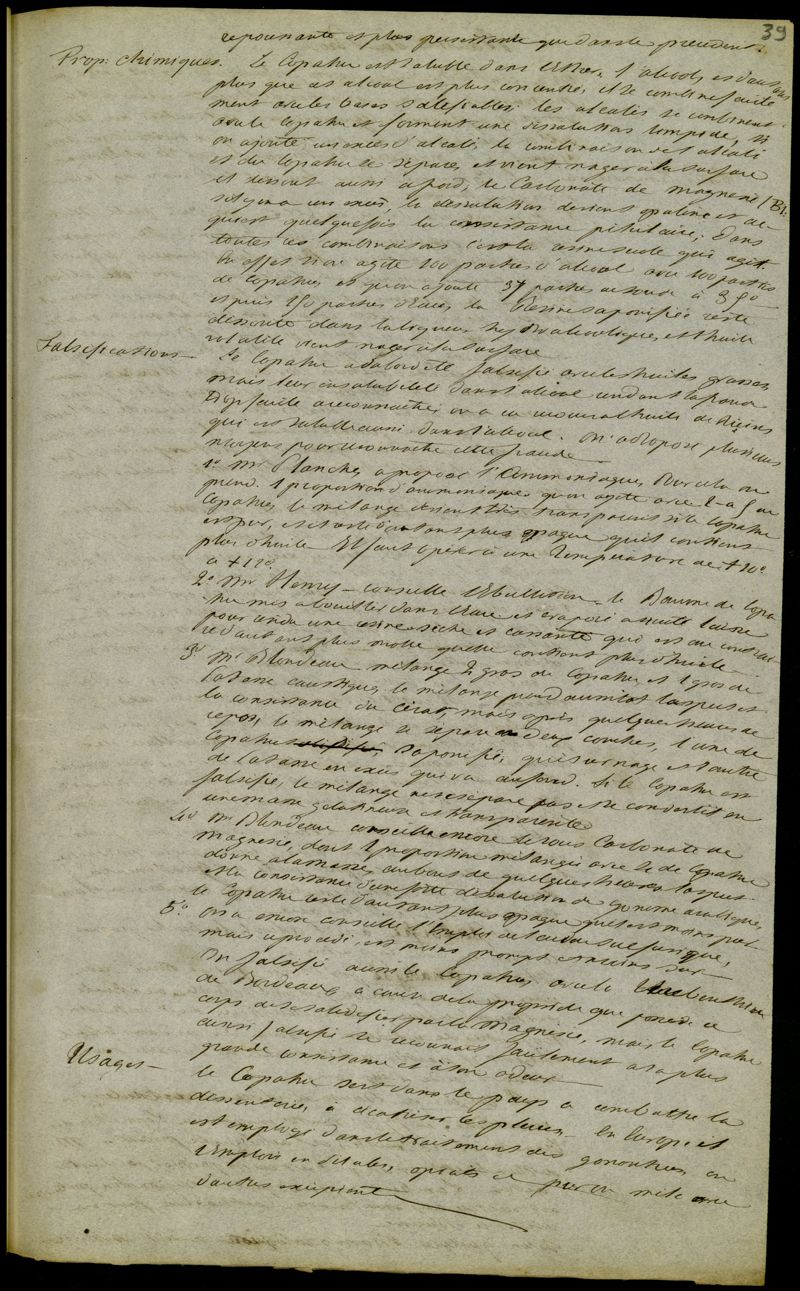 39
repoussante et plus persistante que dans le precedent.
Prop: chimiques. Le Copahu est soluble dans l'Ether, l'alcool, et d'autant
plus que cet alcool est plus concentré, il se combine facile
ment avec les bases salifiables. les alcalis se combinent
avec le Copahu et forment une dissolution limpide, si
on ajoute un excès d'alcali la combinaison de l'alcali
et du Copahu se sépare, et vient nager à la surface
il dissout aussi à froid, le Carbonate de magnesie
s'il y en a un excès, la dissolution devient opaline et ac-
quiert quelquefois la consistance pilulaire; Dans
toutes ces combinaisons c'est la resine seule qui agit.
En effet si on agite 100 parties d'alcool avec 100 parties
de Copahu, et qu'on ajoute 37 parties de soude à
et puis 150 parties d'eau, la Resine saponifiée reste
dissoute dans la liqueur hydroalcoolique, et l'huile
volatile vient nager à la surface
Falsifications — Le Copahu a d'abord été falsifié avec les huiles grasses,
mais leur insolubilité dans l'alcool rendant la fraude
trop facile à reconnaitre, on a eu recours à l'huile de Ricins
qui est soluble aussi dans l'alcool. On a proposé plusieurs
moyens pour reconnaitre cette fraude
1° Mr Planche, a proposé l'Ammoniaque, Pour cela on
prend 1 proportion d'ammoniaque qu'on agite avec 2 a 5 de
Copahu, le mélange devient très transparent si le Copahu
est pur, et reste d'autant plus opaque qu'il contient
plus d'huile. Il faut opérer à une Température de +10°
à +12°.
2° Mr Henry — conseille l'Ebullition — le Baume de Copa
hu mis à bouillir dans l'Eau et evaporé ensuite laisse
pour residu une resine seche et cassante qui est au contrai-
re d'autant plus molle qu'elle contient plus d'huile —
3° Mr Blondeau mélange 2 gros de Copahu, et 1 gros de
Potasse caustique, le mélange prend aussitot l'aspect et
la consistance du Cérat, mais après quelques heures de
repos, le mélange se sépare en deux couches, l'une de
Copahu saponifié, qui surnage et l'autre
de Potasse en excès qui va au fond. Si le Copahu est
falsifié, le mélange ne se sépare pas et se convertit en
une masse gelatineuse et transparente
4° Mr Blondeau conseille encore le sous Carbonate de
magnésie, dont 1 proportion mélangée avec de Copahu
donne à la masse, au bout de quelques heures l'aspect
et la consistance d'une forte dissolution de gomme arabique,
le Copahu reste d'autant plus opaque qu'il est moins pur —
5° On a encore conseillé l'Emploi de l'acide sulfurique,
mais ce procédé, est moins prompt et moins sur —
On falsifie aussi le Copahu, avec la Térébenthine
de Bordeaux, à cause de la propriété que possède ce
corps de se solidifier par la magnésie, mais le Copahu
ainsi falsifié se reconnait facilement a sa plus
grande consistance et à son odeur —
Usages — Le Copahu sert dans le pays à combattre la
dissenterie, à cicatriser les plaies. En Europe, il
est employé dans le traitement des gonorrhées, on
l'emploie en pilules, opiats, et pur ou mêlé avec
d'autres excipients